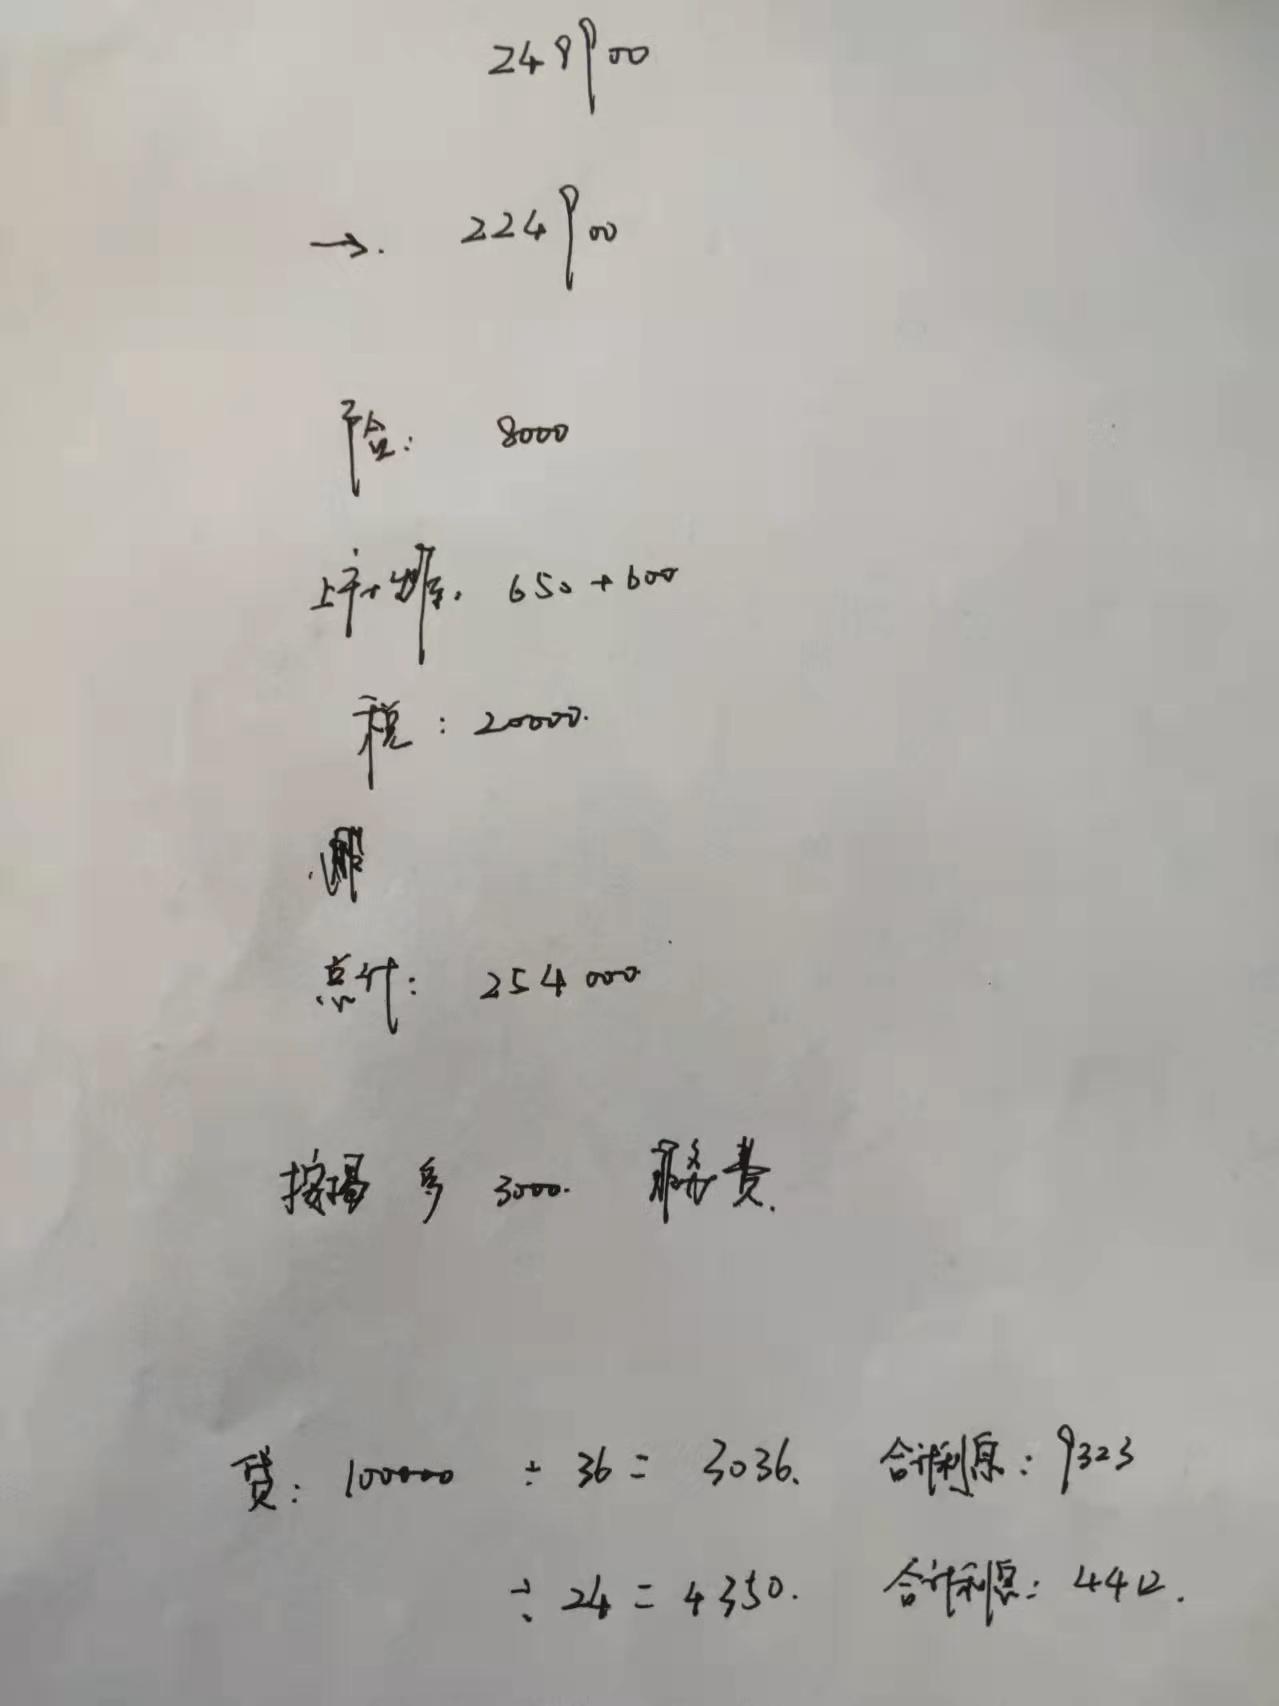 249900
→. 224900
险: 8000
上户+ 650+600
税: 20000.
总计: 254000
按揭 多 3000. 服务费.
贷: 100000 ÷ 36 = 3036. 合计利息: 9323
÷ 24 = 4350. 合计利息: 4412.